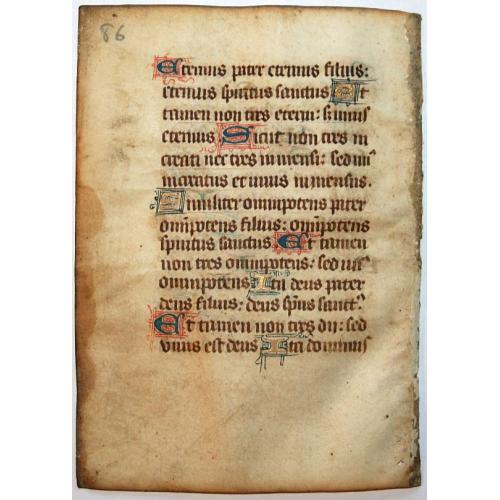 86
Eternus pater eternus filius:
eternus spiritus sanctus Et
tamen non tres eterni: s; unus
eternus Sicut non tres in
creati nec tres inmensi: sed un
increatus et unus inmensus.
Similiter omnipotens pater
omipotens filius: omipotens
spiritus sanctus Et tamen
non tres omnipotens: sed un
omnipotens Ita deus pater
deus filius: deus spus sanct
Et tamen non tres dii: sed
unus est deus Ita dominus